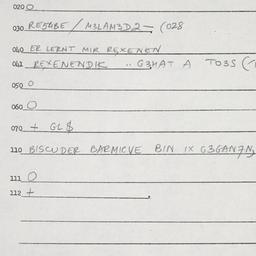 020 O
030 RE54BE / M3LAM3D2 — (028
040 ER LERNT MIR REXENEN
041 REXENENDIK .. G3HAT A TO3S (
050 O
060 O
070 + GL$
110 BISCUDER BARMICVE BIN IX G3GAN7N3
111 O
112 +